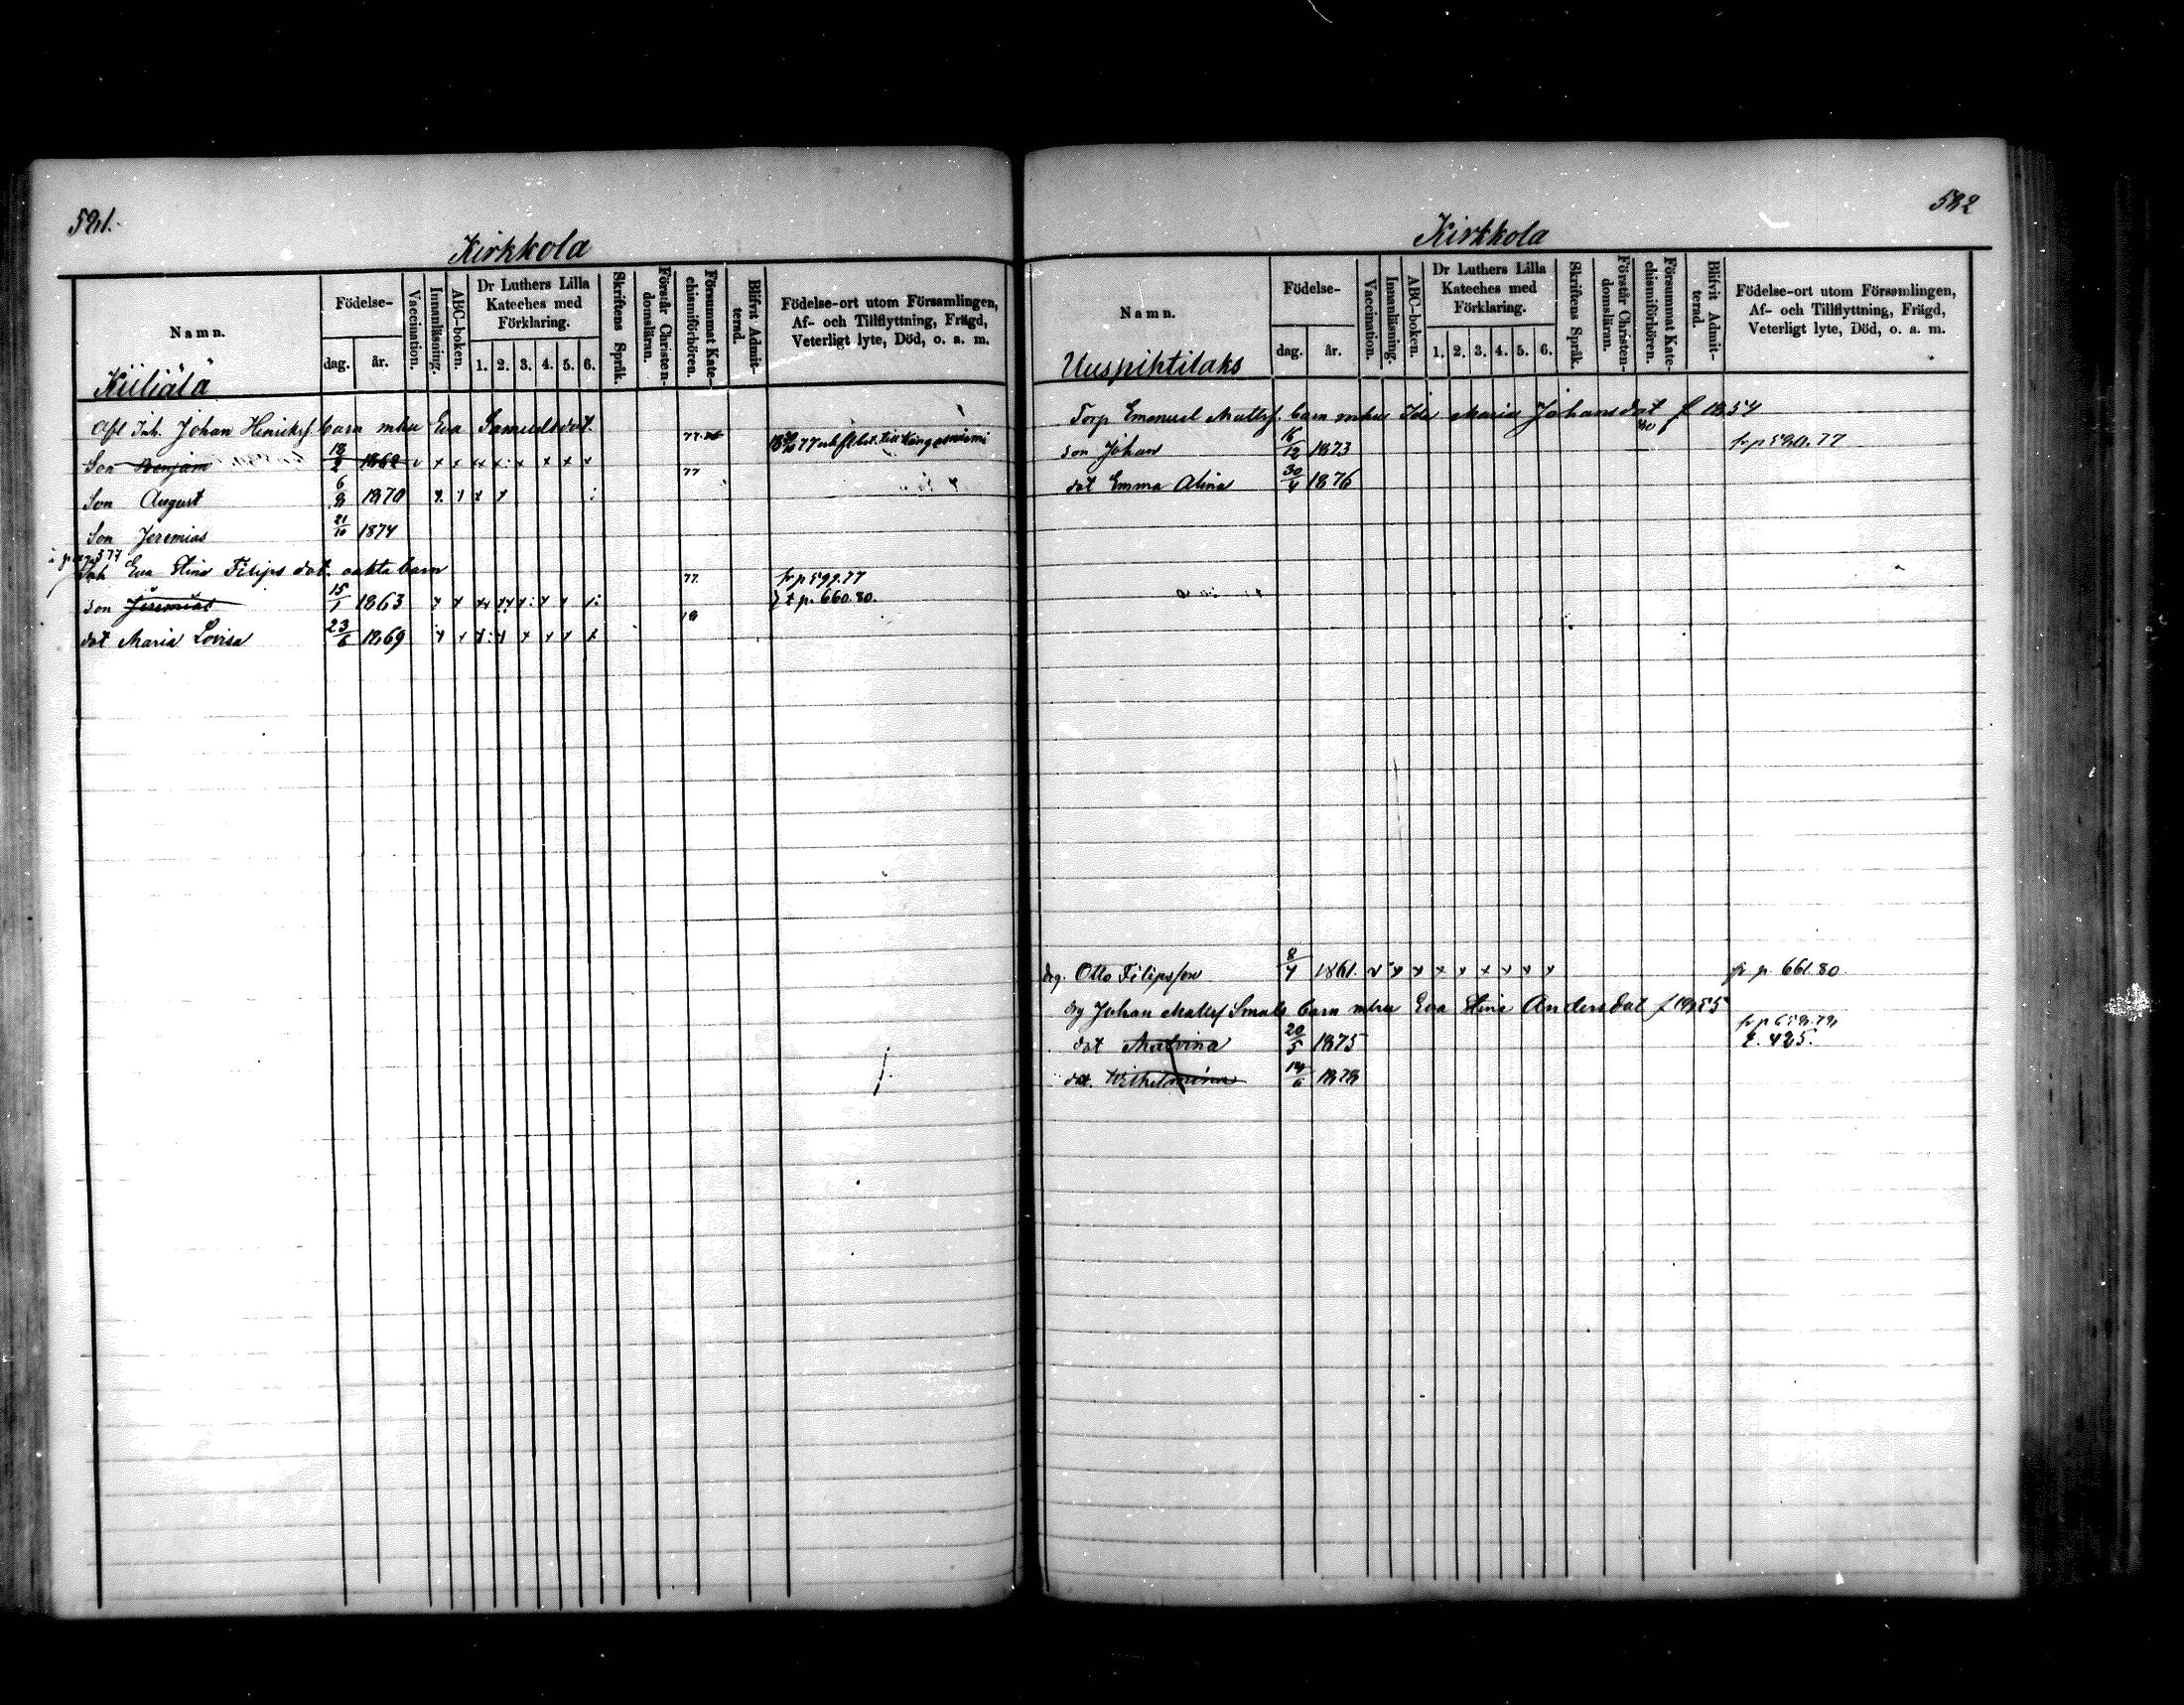 581.
Kirkkola
Namn.
Födelse-
dag.
år.
Vaccination.
Innanläsning.
ABC-boken.
Dr Luthers Lilla
Kateches med
Förklaring.
1. 2. 3. 4. 5. 6.
Skriftens Språk.
Förstår Christen-
domsläran.
Försummat Kate-
chismiförhören.
Blifvit Admit-
terad.
Födelse-ort utom Församlingen,
Af- och Tillflyttning, Frägd,
Veterligt lyte, Död, o. a. m.
Kiiliälä
Afl Inh. Johan Hinrikss. barn mhu Eva Samuelsdot.
Son Benjam 18/2 1862 v x x x x x x x x 77. till Kangasniemi
Son August 6/8 1870 x x x x 77
Son Jeremias 21/10 1874
pag. 577
Inh Eva Stina Filipsdot. oakta barn
son Jeremias 15/1 1863 77. fr p 599.77
t p. 660.80.
dot Maria Lovisa 23/6 1869 x x x x x x x x
582
Kirkkola
Namn.
Födelse-
dag.
år.
Vaccination.
Innanläsning.
ABC-boken.
Dr Luthers Lilla
Kateches med
Förklaring.
1. 2. 3. 4. 5. 6.
Skriftens Språk.
Förstår Christen-
domsläran.
Försummat Kate-
chismiförhören.
Blifvit Admit-
terad.
Födelse-ort utom Församlingen,
Af- och Tillflyttning, Frägd,
Veterligt lyte, Död, o. a. m.
Uuspihtilaks
Torp Emanuel Mattss. barn mhu Ida Maria Johansdot f 1854
son Johan 16/12 1873 fr p 580.77
dot Emma Alina 30/4 1876
drg. Otto Filipsson 8/4 1861. v x x x x x x x x fr p. 661.80
drg Johan Mattss Smals barn mhu Eva Stina Andersdot f 1855
dot Malvina 20/5 1875 fr p 658.78
t. 425.
dot. Wilhelmina 14/6 1878